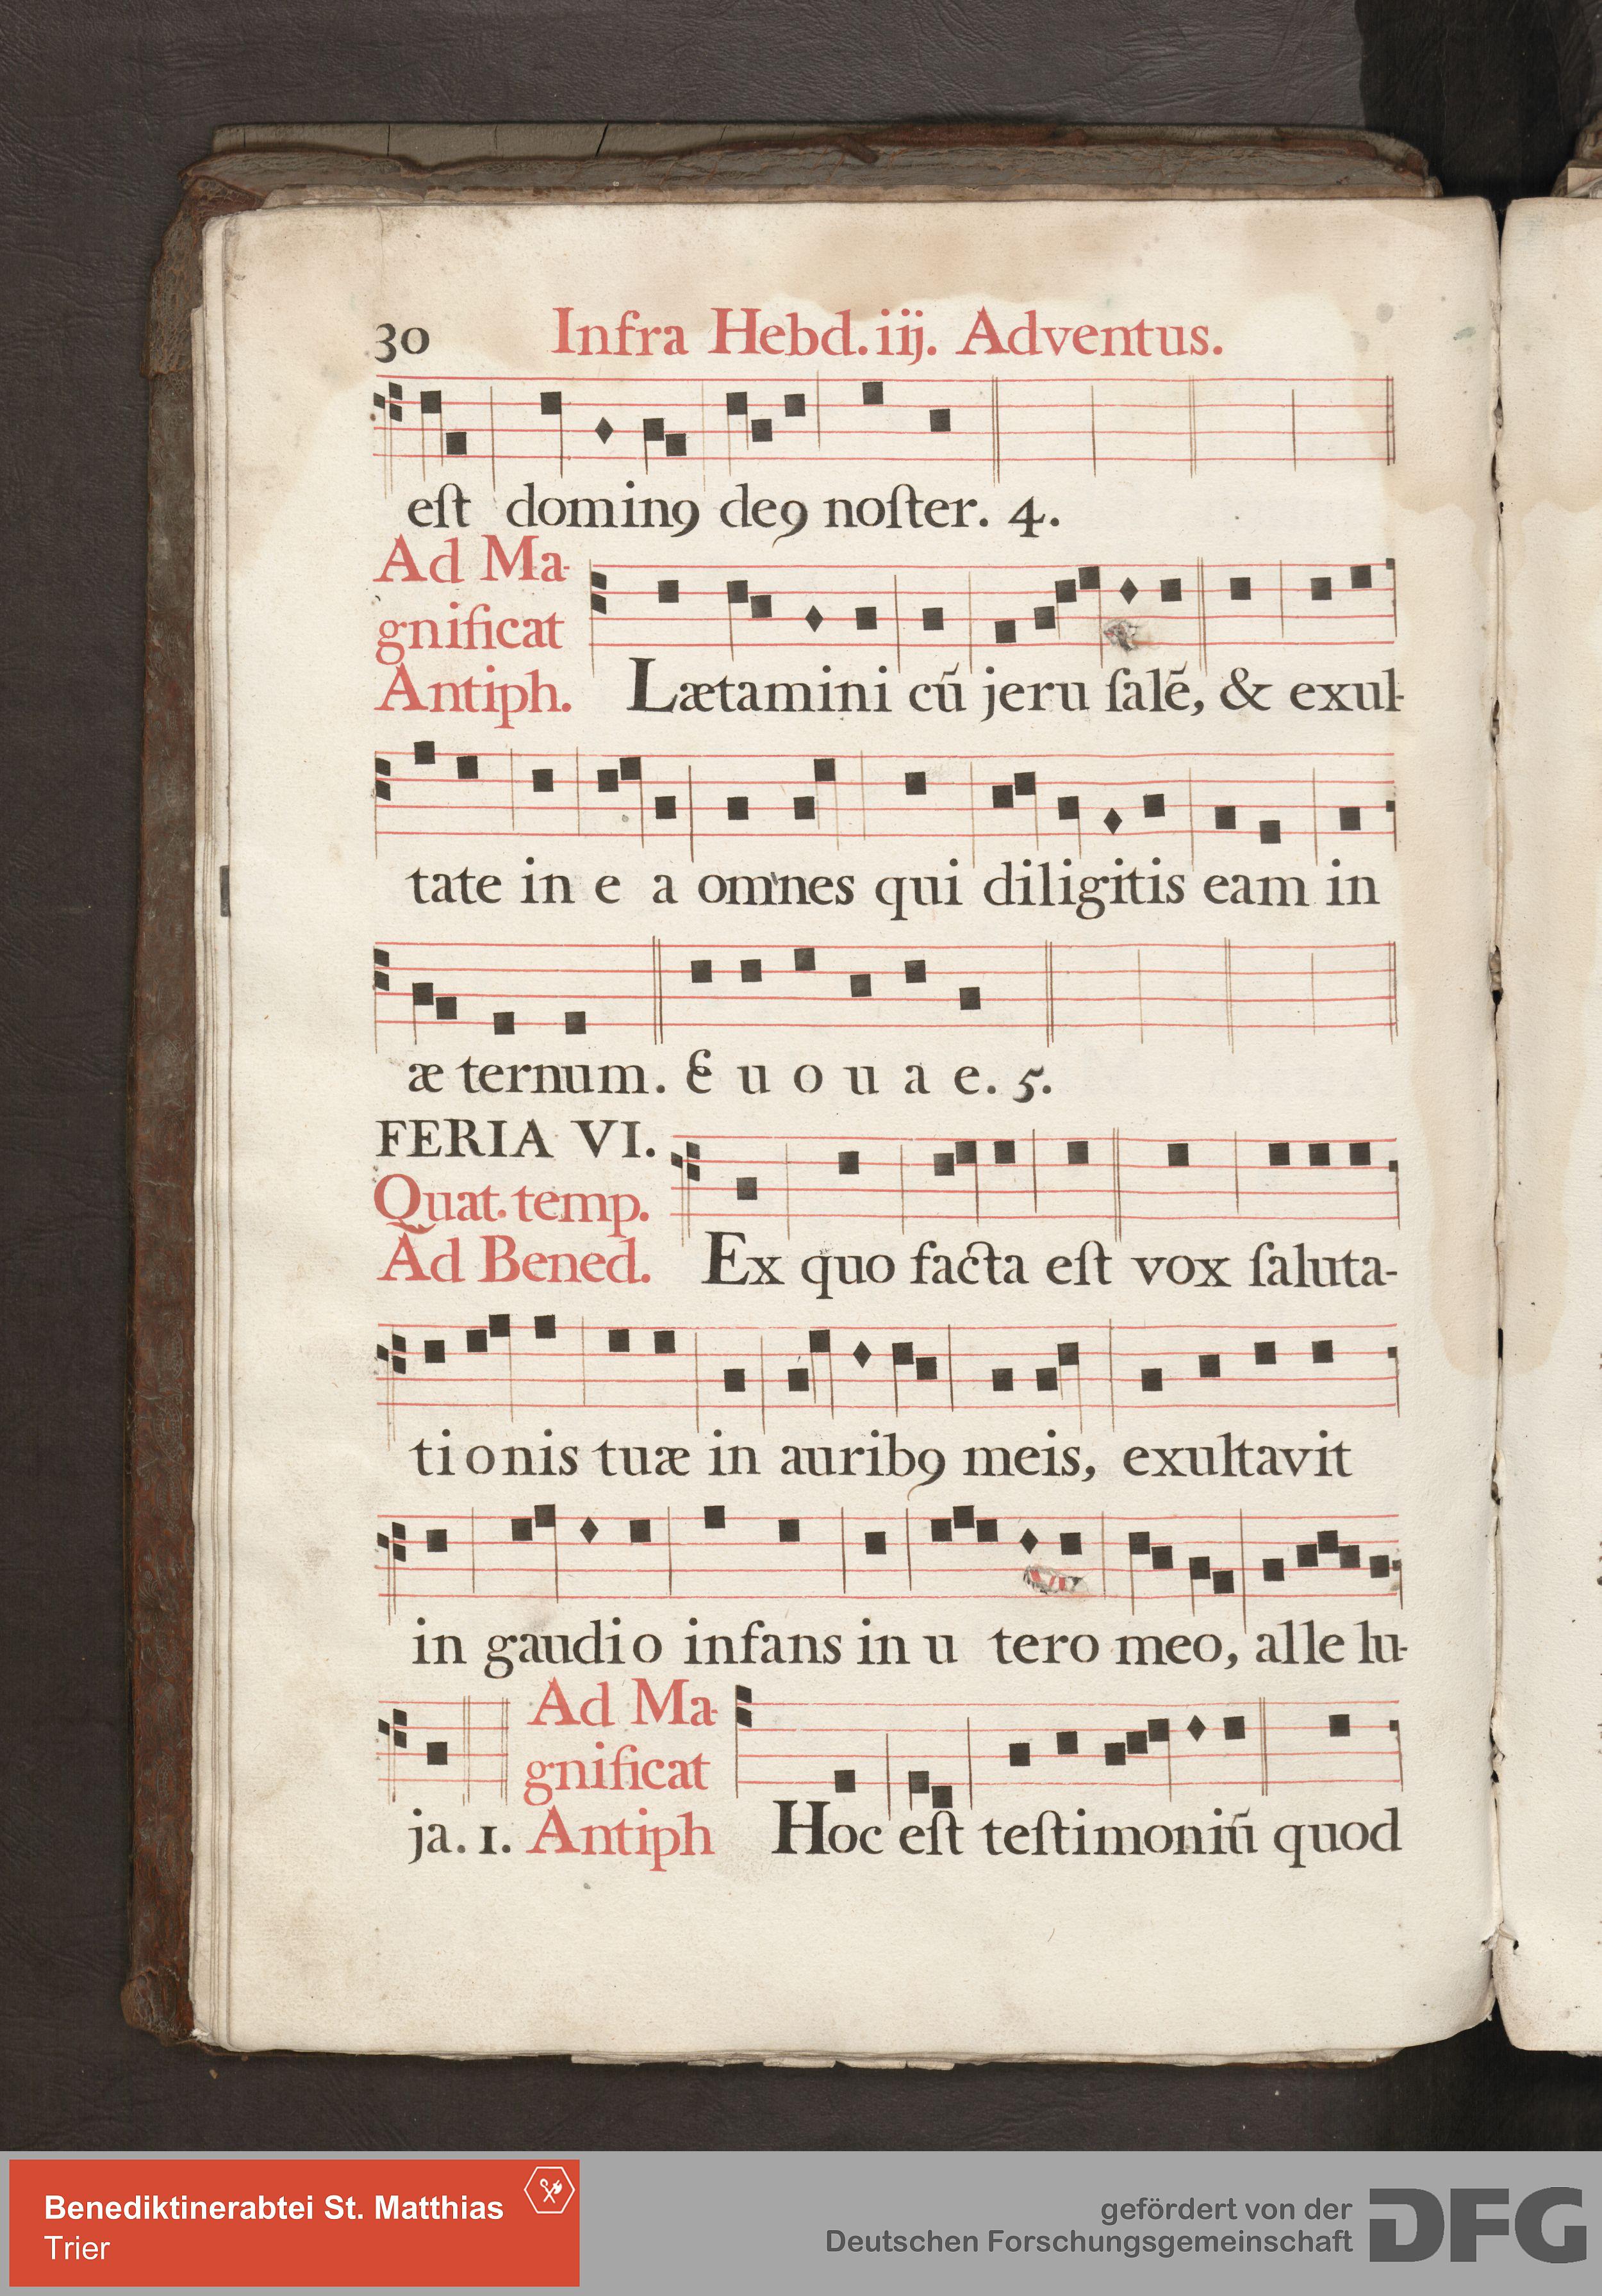 30 Infra Hebd. iij. Adventus.
eſt domin9 de9 noſter. 4.
Ad Ma-
gnificat
Antiph. Lætamini cū jeru ſalē, & exul-
tate in e a omnes qui diligitis eam in
æ ternum. E u o u a e. 5.
FERIA VI.
Quat. temp.
Ad Bened. Ex quo facta eſt vox ſaluta-
tionis tuæ in aurib9 meis, exultavit
in gaudio infans in u tero meo, alle lu-
ja. 1. Ad Ma-
gnificat
Antiph Hoc eſt teſtimoniū quod
Benediktinerabtei St. Matthias
Trier
gefördert von der
Deutschen Forschungsgemeinschaft
DFG